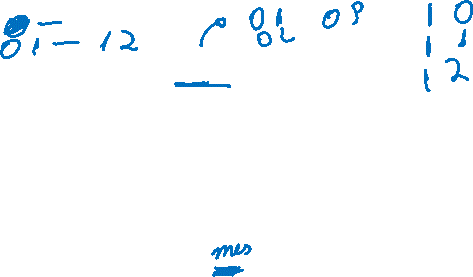 01 - 12
01 09
02
10
11
12
mes